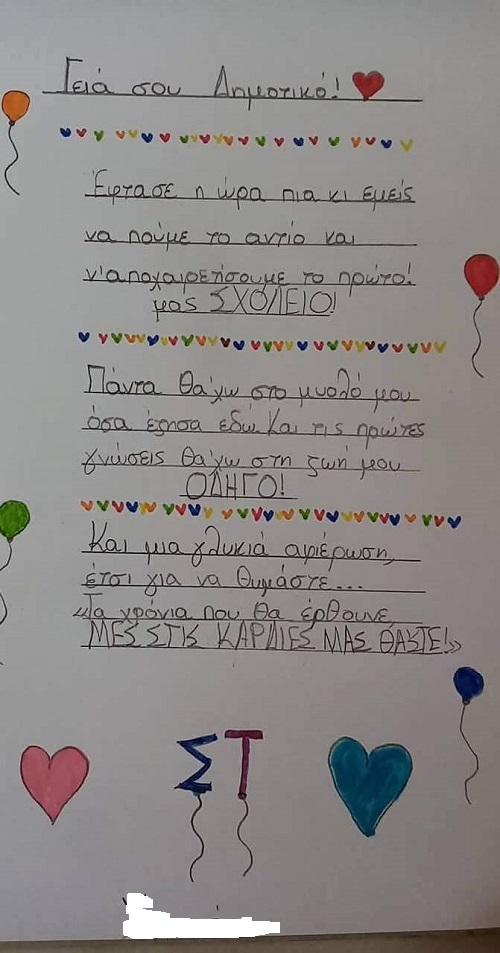 Γειά σου Δημοτικό!
Έφτασε η ώρα πια κι εμείς
να πούμε το αντίο και
ν'αποχαιρετήσουμε το πρώτο!
μας ΣΧΟΛΕΙΟ!
Πάντα θα'χω στο μυαλό μου
όσα έζησα εδώ και τις πρώτες
γνώσεις θα'χω στη ζωή μου
ΟΔΗΓΟ!
Και μια γλυκιά αφιέρωση,
έτσι για να θυμάστε...
«Τα χρόνια που θα έρθουνε,
ΜΕΣ ΣΤΙΣ ΚΑΡΔΙΕΣ ΜΑΣ ΘΑΣΤΕ!»
ΣΤ